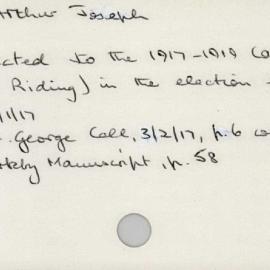 Arthur Joseph
ected to the 1917-1919 Co
Riding) in the election
/1/17
. George Call, 3/2/17, p.6 co
rkby Manuscript, p. 58